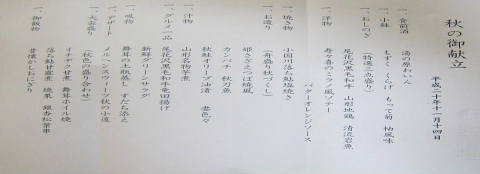 秋の御献立
平成二十年十一月十四日
一、食前酒 湯の原わいん
一、小鉢 もずく くらげ もって菊 柚風味
一、おしのぎ (特選三点盛り)
尾花沢黒毛和牛 山形地鶏 清流岩魚
一、洋物 寿々喜のミラノ風ソテー
バターオレンジソース
一、焼き物 小国川落ち鮎塩焼き
姫さざえつぼ焼風
一、お造り (舟盛り秋づくし)
カンパチ 秋刀魚
秋鮭オリーブ油漬 妻色々
一、汁物 山形名物芋煮
一、グルメ品 尾花沢黒毛和牛竜田揚げ
新鮮グリーンサラダ
一、吸物 舞茸の土瓶蒸し すだち添え
一、デザート メルヘンスウィーツ秋の小道
一、大皿盛り (秋色の盛り合わせ)
イチヂク甘煮 舞茸ホイル焼
落ち鮎甘露煮 焼栗 銀杏松葉串
一、御飯物 昔懐かしおにぎり